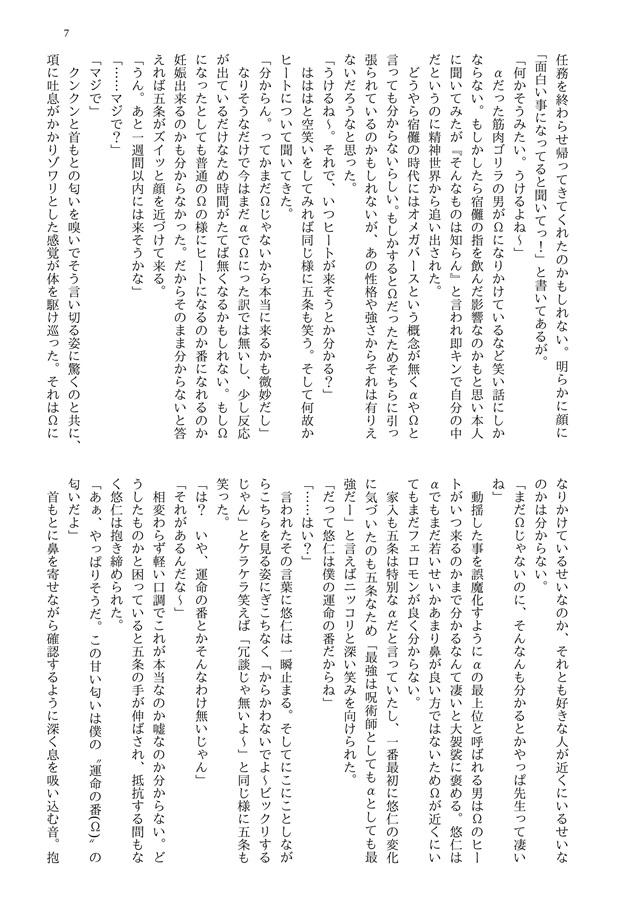 7
任務を終わらせ帰ってきてくれたのかもしれない。明らかに顔に
「面白い事になってると聞いてっ！」と書いてあるが。
「何かそうみたい。うけるよね〜」
　αだった筋肉ゴリラの男がΩになりかけているなど笑い話にしか
ならない。もしかしたら宿儺の指を飲んだ影響なのかもと思い本人
に聞いてみたが『そんなものは知らん』と言われ即キンで自分の中
だというのに精神世界から追い出された。
　どうやら宿儺の時代にはオメガバースという概念が無くαやΩと
言っても分からないらしい。もしかするとΩだったためそちらに引っ
張られているのかもしれないが、あの性格や強さからそれは有りえ
ないだろうなと思った。
「うけるね〜。それで、いつヒートが来そうとか分かる？」
　ははははと空笑いをしてみれば同じ様に五条も笑う。そして何故か
ヒートについて聞いてきた。
「分からん。ってかまだΩじゃないから本当に来るかも微妙だし」
　なりそうなだけで今はまだαでΩになった訳では無いし、少し反応
が出ているだけなため時間がたてば無くなるかもしれない。もしΩ
になったとしても普通のΩの様にヒートになるのか番になれるのか
妊娠出来るのかも分からなかった。だからそのまま分からないと答
えれば五条がズイッと顔を近づけて来る。
「うん。あと一週間以内には来そうかな」
「……マジで？」
「マジで」
　クンクンと首もとの匂いを嗅いでそう言い切る姿に驚くのと共に、
項に吐息がかかりゾワリとした感覚が体を駆け巡った。それはΩに
なりかけているせいなのか、それとも好きな人が近くにいるせいな
のかは分からない。
「まだΩじゃないのに、そんなんも分かるとかやっぱ先生って凄い
ね」
　動揺した事を誤魔化すようにαの最上位と呼ばれる男はΩのヒー
トがいつ来るのかまで分かるなんて凄いと大袈裟に褒める。悠仁は
αでもまだ若いせいかあまり鼻が良い方ではないためΩが近くにい
てもまだフェロモンが良く分からない。
　家入も五条は特別なαだと言っていたし、一番最初に悠仁の変化
に気づいたのも五条なため「最強は呪術師としてもαとしても最
強だー」と言えばニッコリと深い笑みを向けられた。
「だって悠仁は僕の運命の番だからね」
「……はい？」
　言われたその言葉に悠仁は一瞬止まる。そしてにこにことしなが
らこちらを見る姿にぎこちなく「からかわないでよ〜ビックリする
じゃん」とケラケラ笑えば「冗談じゃ無いよ〜」と同じ様に五条も
笑った。
「は？　いや、運命の番とかそんなわけ無いじゃん」
「それがあるんだな〜」
　相変わらず軽い口調でこれが本当なのか嘘なのか分からない。ど
うしたものかと困っていると五条の手が伸ばされ、抵抗する間もな
く悠仁は抱き締められた。
「あぁ、やっぱりそうだ。この甘い匂いは僕の〝運命の番(Ω)〟の
匂いだよ」
　首もとに鼻を寄せながら確認するように深く息を吸い込む音。抱